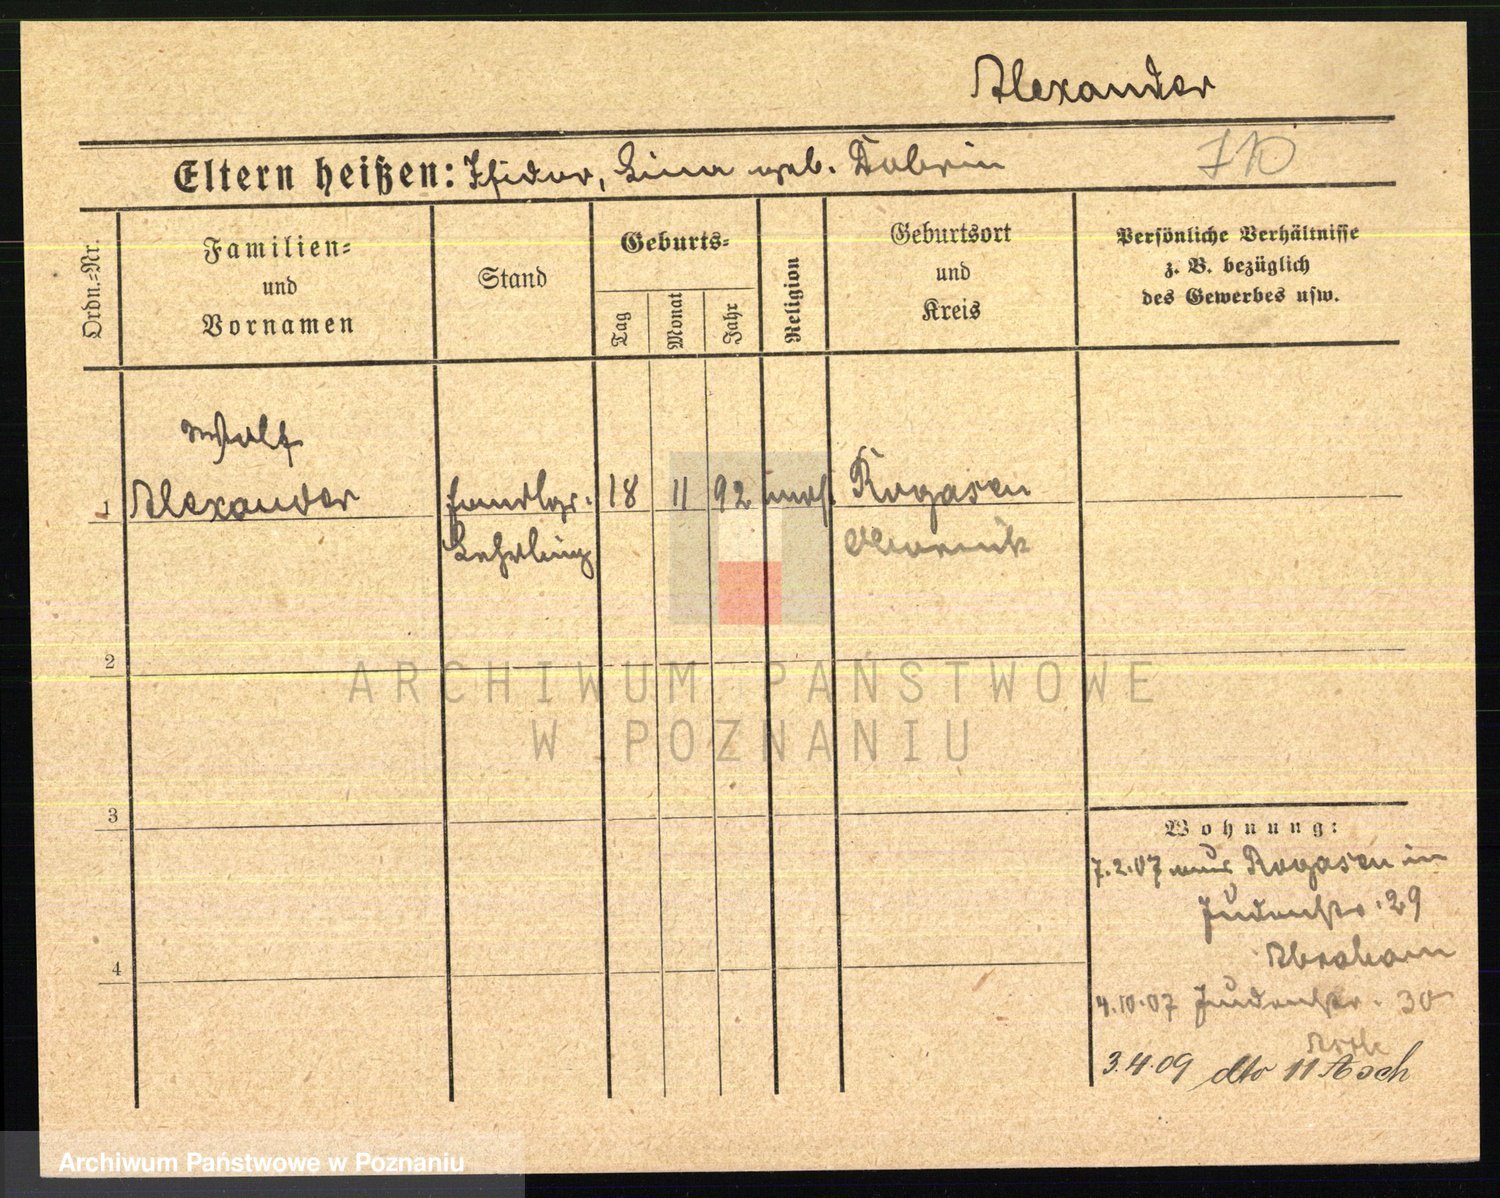 Alexander
Eltern heißen: Isidor, Lina geb. Dobrin
Ordn.=Nr.
Familien=
und
Vornamen
Stand
Geburts=
Tag
Monat
Jahr
Religion
Geburtsort
und
Kreis
Persönliche Verhältnisse
z. B. bezüglich
des Gewerbes usw.
Wolf
1 Alexander 18 11 92 mos. Rogasen
Lehrling Obornik
2
3
4
Wohnung:
7.2.07 aus Rogasen in
Judenstr. 29
Abraham
4.10.07 Judenstr. 30
3.4.09 dto 11 Asch
ARCHIWUM PAŃSTWOWE
W POZNANIU
Archiwum Państwowe w Poznaniu